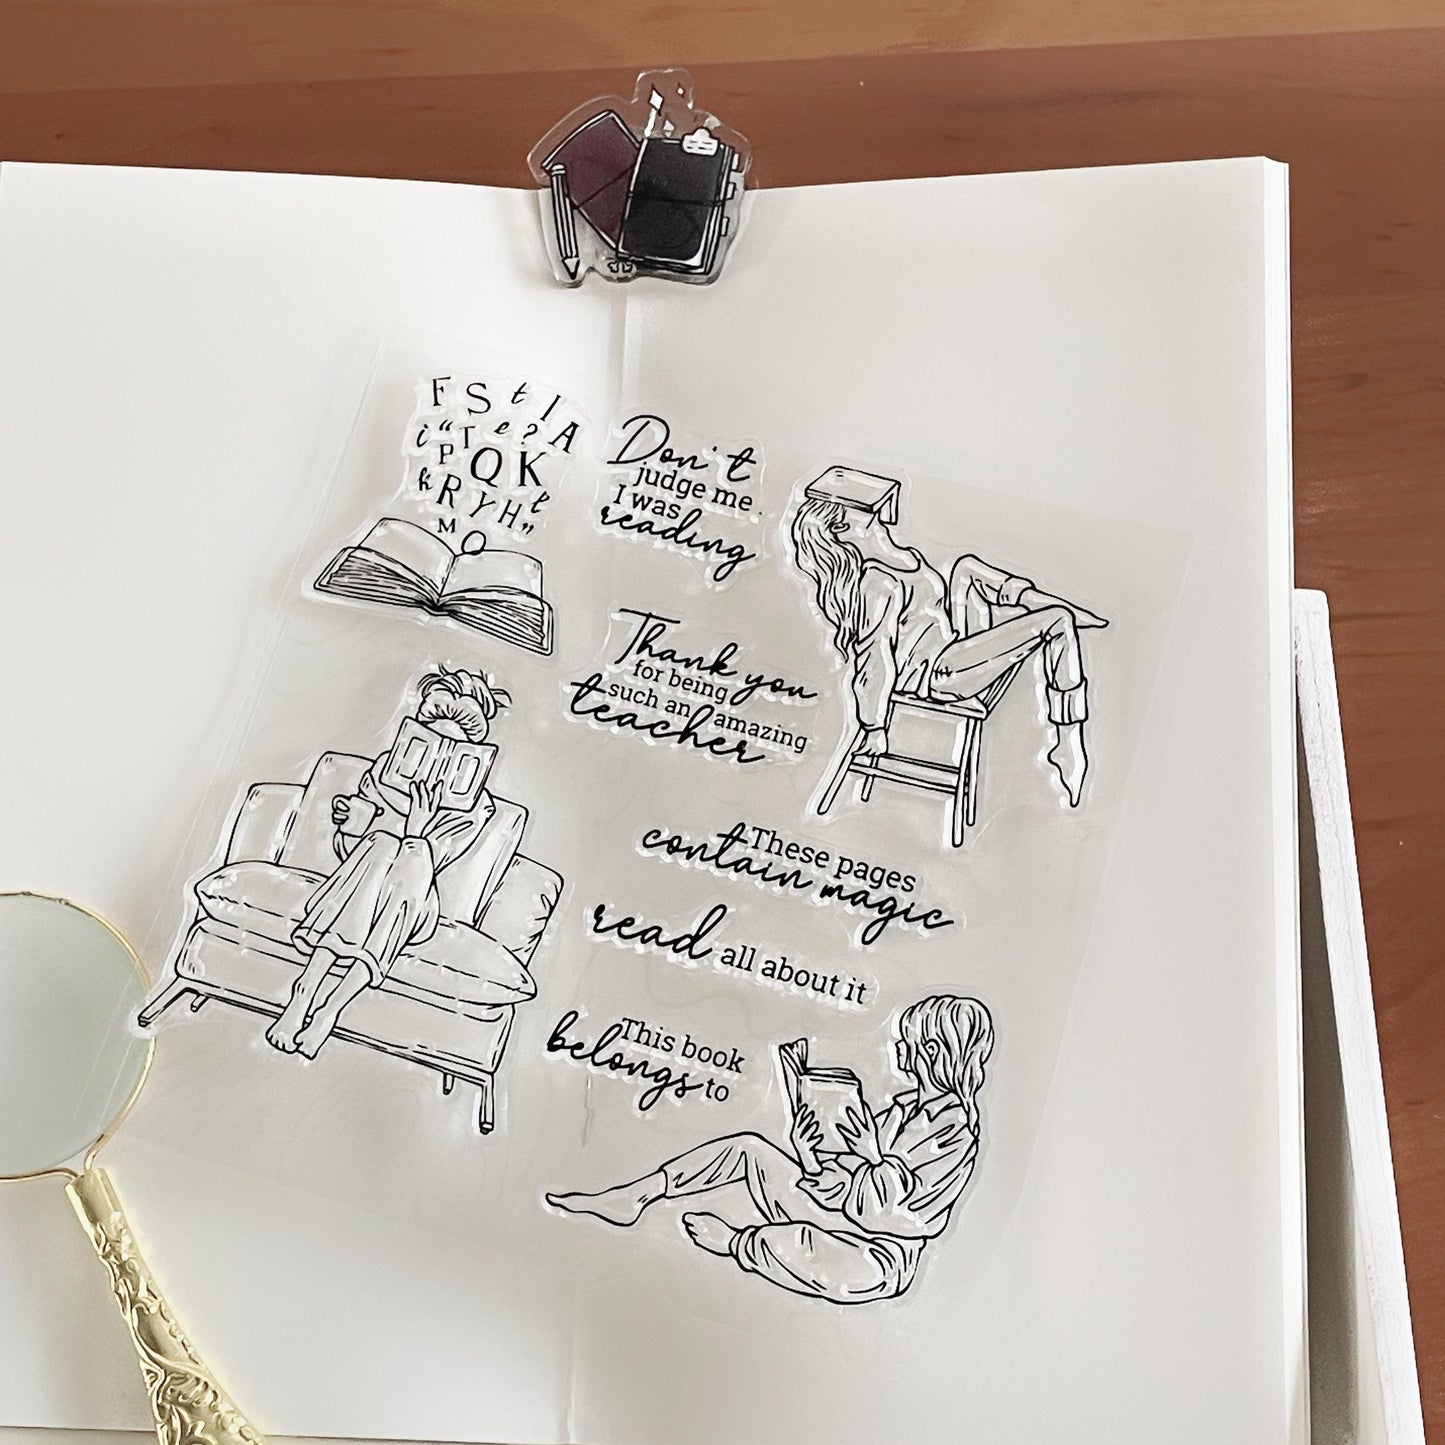 F S t I
i “ T e ? A
P Q K
k R Y H t
M O ”
Don't
judge me
I was
reading
Thank you
for being
such an amazing
teacher
These pages
contain magic
read all about it
This book
belongs to